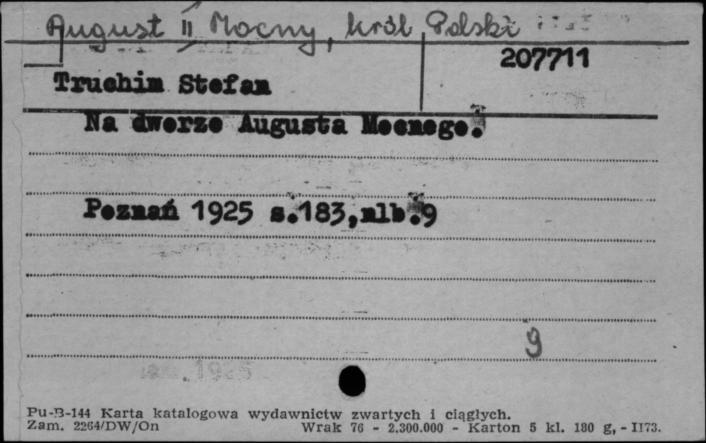 August II Mocny, król Polski
207711
Truchim Stefan
Na dworze Augusta Mocnego.
Poznań 1925 s.183,nlb.9
9
1925
Pu-B-144 Karta katalogowa wydawnictw zwartych i ciągłych.
Zam. 2264/DW/On Wrak 76 - 2.300.000 - Karton 5 kl. 180 g, - II73.